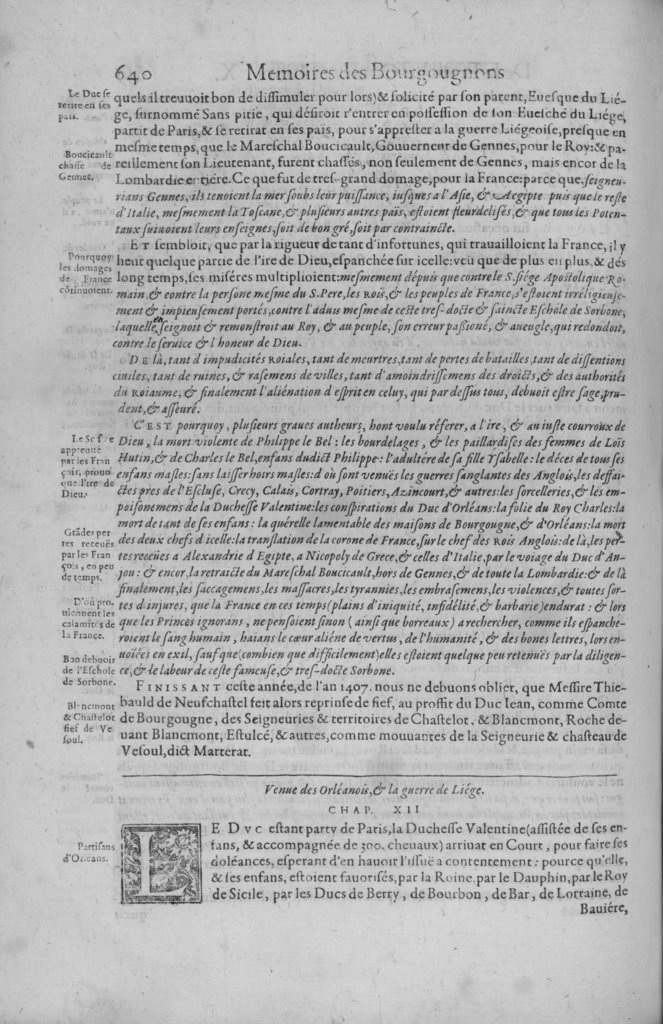 640 Memoires des Bourgougnons
Le Duc se
retire en ses
païs.
quels il treuuoit bon de dissimuler pour lors) & solicité par son parent, Euesque du Lié-
ge, surnommé Sans pitie, qui désiroit r'entrer en possession de son Euesché du Liége,
partit de Paris, & se retirat en ses païs, pour s'apprester a la guerre Liégeoise, presque en
mesme temps, que le Mareschal Boucicault, Gouuerneur de Gennes, pour le Roy: & pa-
reillement son Lieutenant, furent chassés, non seulement de Gennes, mais encor de la
Lombardie entiére. Ce que fut de tres-grand domage, pour la France: parce que, seigneu-
rians Gennes, ils tenoient la mer soubs leur puissance, iusques a l'Asie, & Aegipte puis que le reste
d'Italie, mesmement la Toscane, & plusieurs autres païs, estoient fleurdelisés, & que tous les Poten-
taux suiuoient leurs enseignes, soit de bon gré, soit par contraincte.
Boucicault
chassé de
Gennes.
ET sembloit, que par la rigueur de tant d'infortunes, qui trauailloient la France, il y
heut quelque partie de l'ire de Dieu, espanchée sur icelle: veu que de plus en plus, & dés
long temps, ses miséres multiplioient: mesmement dépuis que contre le S. siége Apostolique Ro-
main & contre la persone mesme du S. Pere, les Rois, & les peuples de France, s'estoient irréligieuse-
ment & impieusement portés, contre l'aduis mesme de ceste tres-docte & saincte Eschole de Sorbone,
laquelle enseignoit & remonstroit au Roy, & au peuple, son erreur passioné, & aueugle, qui redondoit,
contre le seruice & l'honeur de Dieu.
Pourquoy
les domages
de France
côtinuoient.
DE là, tant d'impudicités roiales, tant de meurtres, tant de pertes de batailles, tant de dissentions
ciuiles, tant de ruines, & rasemens de villes, tant d'amoindrissemens des droicts, & des authorités
du Roiaume, & finalement l'aliénation d'esprit en celuy, qui par dessus tous, debuoit estre sage, pru-
dent, & asseuré.
C'EST pourquoy, plusieurs graues autheurs, hont voulu réferer, a l'ire, & au iuste courroux de
Dieu, la mort violente de Philippe le Bel: les bourdelages, & les paillardises des femmes de Loïs
Hutin, & de Charles le Bel, enfans dudict Philippe: l'adultére de sa fille Ysabelle: le déces de tous ses
enfans masles: sans laisser hoirs masles: d'où sont venuës les guerres sanglantes des Anglois, les deffai-
ctes pres de l'Escluse, Crecy, Calais, Cortray, Poitiers, Azincourt, & autres: les sorcelleries, & les em-
poisonemens de la Duchesse Valentine: les conspirations du Duc d'Orléans: la folie du Roy Charles: la
mort de tant de ses enfans: la quérelle lamentable des maisons de Bourgougne, & d'Orléans: la mort
des deux chefs d'icelle: la translation de la corone de France, sur le chef des Rois Anglois: de là, les per-
tes receuës a Alexandrie d'Egipte, a Nicopoly de Grece, & celles d'Italie, par le voiage du Duc d'An-
jou: & encor, la retraicte du Mareschal Boucicault, hors de Gennes, & de toute la Lombardie: & de là
finalement, les saccagemens, les massacres, les tyrannies, les embrasemens, les violences, & toutes sor-
tes d'injures, que la France en ces temps (plains d'iniquité, infidélité, & barbarie) endurat: & lors
que les Princes ignorans, ne pensoient sinon (ainsi que borreaux) a rechercher, comme ils espanche-
roient le sang humain, haians le cœur aliéne de vertus, de l'humanité, & des bones lettres, lors en-
uoiées en exil, sauf que (combien que difficilement) elles estoient quelque peu retenuës par la diligen-
ce, & le labeur de ceste fameuse, & tres-docte Sorbone.
apprenué
par les Fran
çois, prouo
que l'ire de
Dieu.
Grãdes per
tes receuës
par les Fran
çois, en peu
de temps.
D'où pro-
uiennent les
calamités de
la France.
Bon debuoir
de l'Eschole
de Sorbone.
FINISSANT ceste année, de l'an 1407. nous ne debuons oblier, que Messire Thie-
bauld de Neufchastel feit alors reprinse de fief, au proffit du Duc Iean, comme Comte
de Bourgougne, des Seigneuries & territoires de Chastelot, & Blancmont, Roche de-
uant Blancmont, Estulcé, & autres, comme mouuantes de la Seigneurie & chasteau de
Vesoul, dict Matterat.
Blancmont
& Chastelot
fief de Ve
soul.
Venue des Orléanois, & la guerre de Liége.
CHAP. XII
Partisans
d'Orleans.
LE DVC estant party de Paris, la Duchesse Valentine (assistée de ses en-
fans, & accompagnée de 300. cheuaux) arriuat en Court, pour faire ses
doléances, esperant d'en hauoir l'issuë a contentement: pource qu'elle,
& ses enfans, estoient fauorisés, par la Roine, par le Dauphin, par le Roy
de Sicile, par les Ducs de Berry, de Bourbon, de Bar, de Lorraine, de
Bauiére,